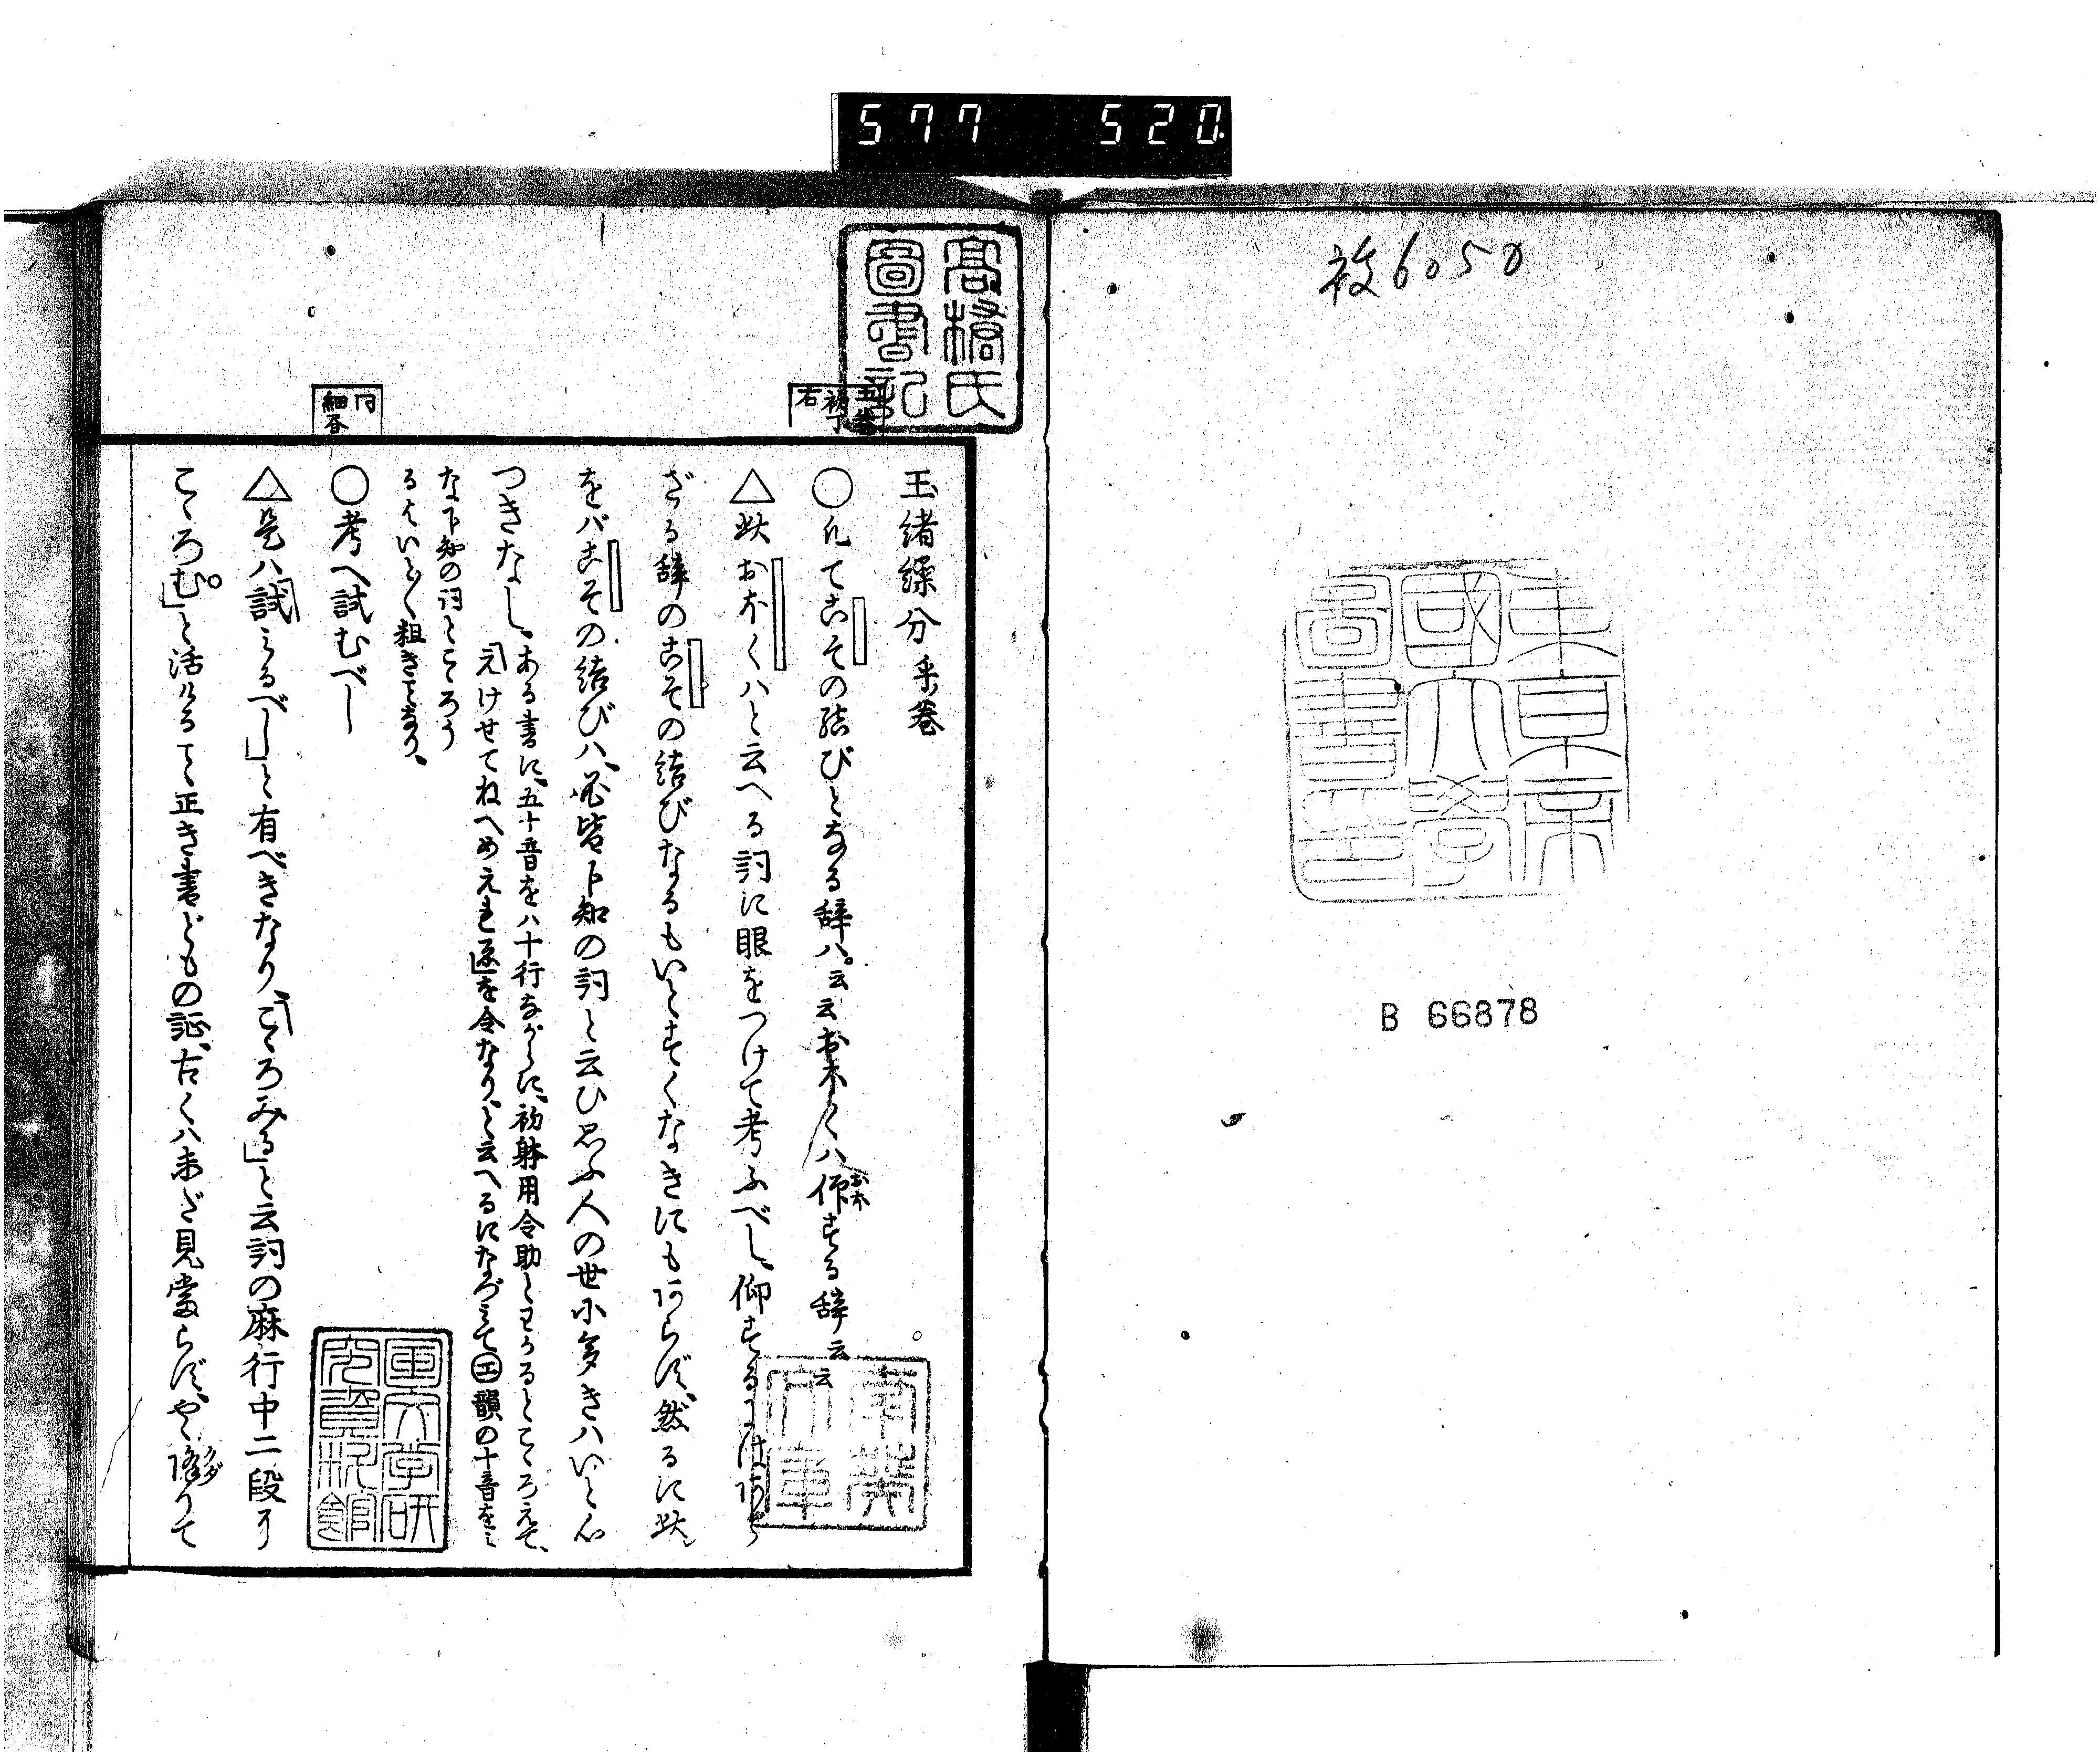 577 520.
被6050
東京帝
國大學
圖書印
B 66878
高橋氏
圖書記
五巻
初丁
右
玉緒繰分 釆巻
○凡てこその結びとなる辞ハ。云云おほくハ仰する辞云云
△此おほくハと云へる詞に眼をつけて考ふべし、仰する
ざる辞のこその結びなるもいとすくなきにもあらず、然るに此
をバこその結びハ、必皆下知の詞と云ひ思ふ人の世に多きハいと心
つきなし。ある書に、五十音をハ十行ながらに、初躰用令助とわかるとこゝろえて、
「えけせてねへめえれ」を令なり、と云へるになづみて㋓韻の十音をミ
な下知の詞とこゝろう
るはいと〱粗きことなり、
同
細書
○考へ試むべし
△是ハ「試みるべし」と有べきなり、「こゝろみる」と云詞の麻行中二段に
こゝろむ」と活ける事、正き書どもの証、古くハ未ダ見當らず、やゝ降りて
クダ
南葵
文庫
国文学研
究資料館